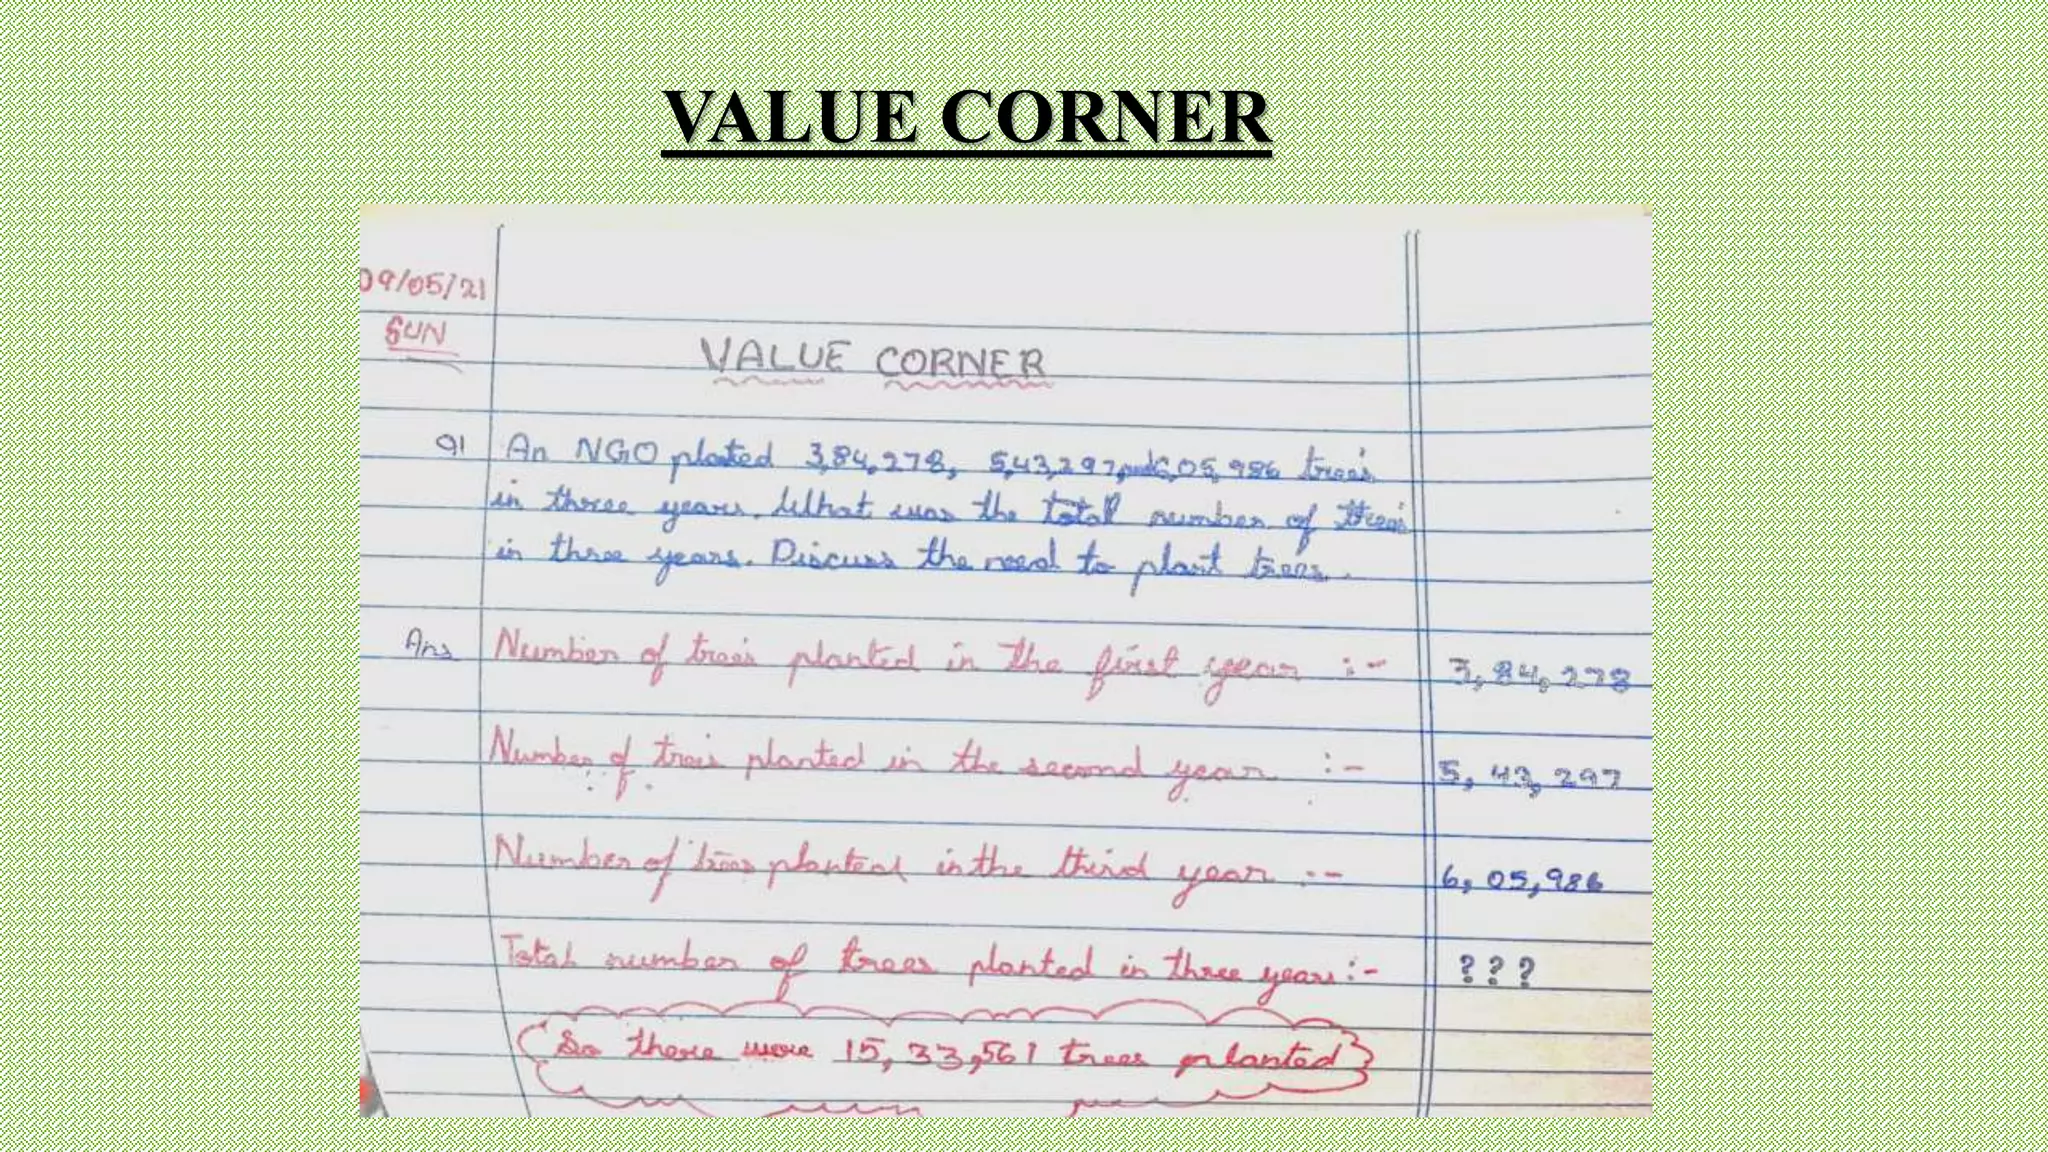 VALUE CORNER
09/05/21
SUN
VALUE CORNER
Q1 An NGO planted 3,84,278, 5,43,297, and 6,05,986 trees
in three years. What was the total number of trees
in three years. Discuss the need to plant trees.
Ans Number of trees planted in the first year :- 3,84,278
Number of trees planted in the second year :- 5,43,297
Number of trees planted in the third year :- 6,05,986
Total number of trees planted in three years :- ???
So there were 15,33,561 trees planted